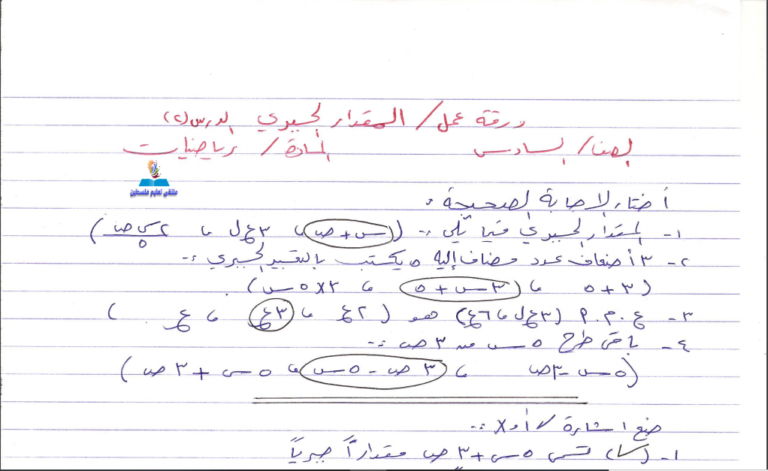 ورقة عمل / المقدار الجبري الدرس (٢)
الصف / السادس المادة / رياضيات
ملتقى تعليم فلسطين
أختار الإجابة الصحيحة :
١- المقدار الجبري فيما يلي :- (س + ص ، ٣ع ل ، ٢س ص/٥)
٢- ٣ أضعاف عدد مضاف إليه ٥ يكتب بالتعبير الجبري :-
(٣ + ٥ ، ٣س + ٥ ، ٣×٥س).
٣- ع.م.م (٣ع ل ، ٦ع) هو (٢ع ، ٣ع ، ع )
٤- باقي طرح ٥س من ٣ص :-
(٥س - ٣ص ، ٣ص - ٥س ، ٥س + ٣ص )
ضع اشارة √ أو × :-
١- (√) تسمى ٥س + ٣ص مقداراً جبرياً